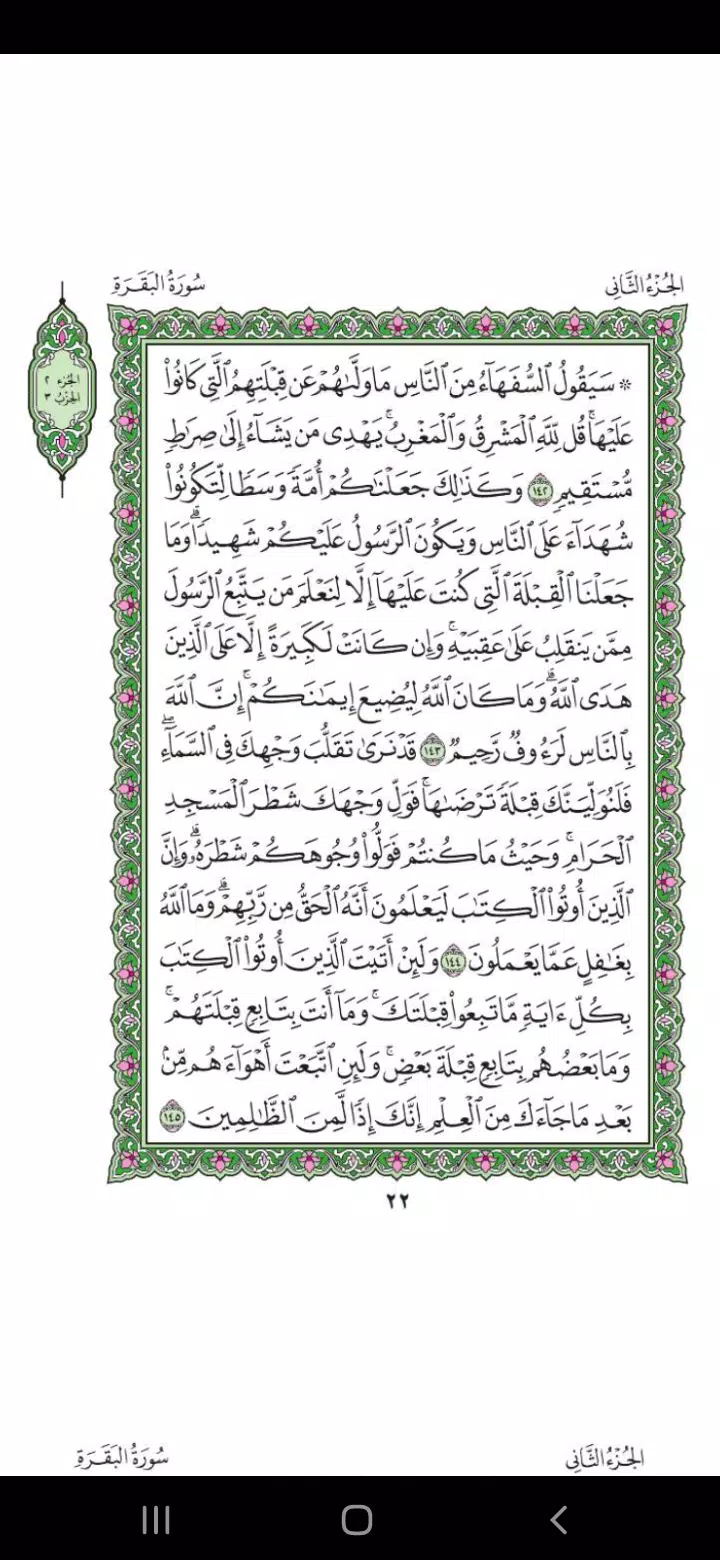 سُورَةُ البَقَرَةِ الجُزْءُ الثَّانِي
الجُزء ٢
الحِزْب ٣
۞ سَيَقُولُ ٱلسُّفَهَآءُ مِنَ ٱلنَّاسِ مَا وَلَّىٰهُمْ عَن قِبْلَتِهِمُ ٱلَّتِي كَانُوا۟
عَلَيْهَا ۚ قُل لِّلَّهِ ٱلْمَشْرِقُ وَٱلْمَغْرِبُ ۚ يَهْدِي مَن يَشَآءُ إِلَىٰ صِرَٰطٍ
مُّسْتَقِيمٍ ١٤٢ وَكَذَٰلِكَ جَعَلْنَٰكُمْ أُمَّةً وَسَطًا لِّتَكُونُوا۟
شُهَدَآءَ عَلَى ٱلنَّاسِ وَيَكُونَ ٱلرَّسُولُ عَلَيْكُمْ شَهِيدًا ۗ وَمَا
جَعَلْنَا ٱلْقِبْلَةَ ٱلَّتِي كُنتَ عَلَيْهَآ إِلَّا لِنَعْلَمَ مَن يَتَّبِعُ ٱلرَّسُولَ
مِمَّن يَنقَلِبُ عَلَىٰ عَقِبَيْهِ ۚ وَإِن كَانَتْ لَكَبِيرَةً إِلَّا عَلَى ٱلَّذِينَ
هَدَى ٱللَّهُ ۗ وَمَا كَانَ ٱللَّهُ لِيُضِيعَ إِيمَٰنَكُمْ ۚ إِنَّ ٱللَّهَ
بِٱلنَّاسِ لَرَءُوفٌ رَّحِيمٌ ١٤٣ قَدْ نَرَىٰ تَقَلُّبَ وَجْهِكَ فِي ٱلسَّمَآءِ ۖ
فَلَنُوَلِّيَنَّكَ قِبْلَةً تَرْضَىٰهَا ۚ فَوَلِّ وَجْهَكَ شَطْرَ ٱلْمَسْجِدِ
ٱلْحَرَامِ ۚ وَحَيْثُ مَا كُنتُمْ فَوَلُّوا۟ وُجُوهَكُمْ شَطْرَهُۥ ۗ وَإِنَّ
ٱلَّذِينَ أُوتُوا۟ ٱلْكِتَٰبَ لَيَعْلَمُونَ أَنَّهُ ٱلْحَقُّ مِن رَّبِّهِمْ ۗ وَمَا ٱللَّهُ
بِغَٰفِلٍ عَمَّا يَعْمَلُونَ ١٤٤ وَلَئِنْ أَتَيْتَ ٱلَّذِينَ أُوتُوا۟ ٱلْكِتَٰبَ
بِكُلِّ ءَايَةٍ مَّا تَبِعُوا۟ قِبْلَتَكَ ۚ وَمَآ أَنتَ بِتَابِعٍ قِبْلَتَهُمْ ۚ
وَمَا بَعْضُهُم بِتَابِعٍ قِبْلَةَ بَعْضٍ ۚ وَلَئِنِ ٱتَّبَعْتَ أَهْوَآءَهُم مِّنۢ
بَعْدِ مَا جَآءَكَ مِنَ ٱلْعِلْمِ إِنَّكَ إِذًا لَّمِنَ ٱلظَّٰلِمِينَ ١٤٥
٢٢
سُورَةُ البَقَرَةِ الجُزْءُ الثَّانِي